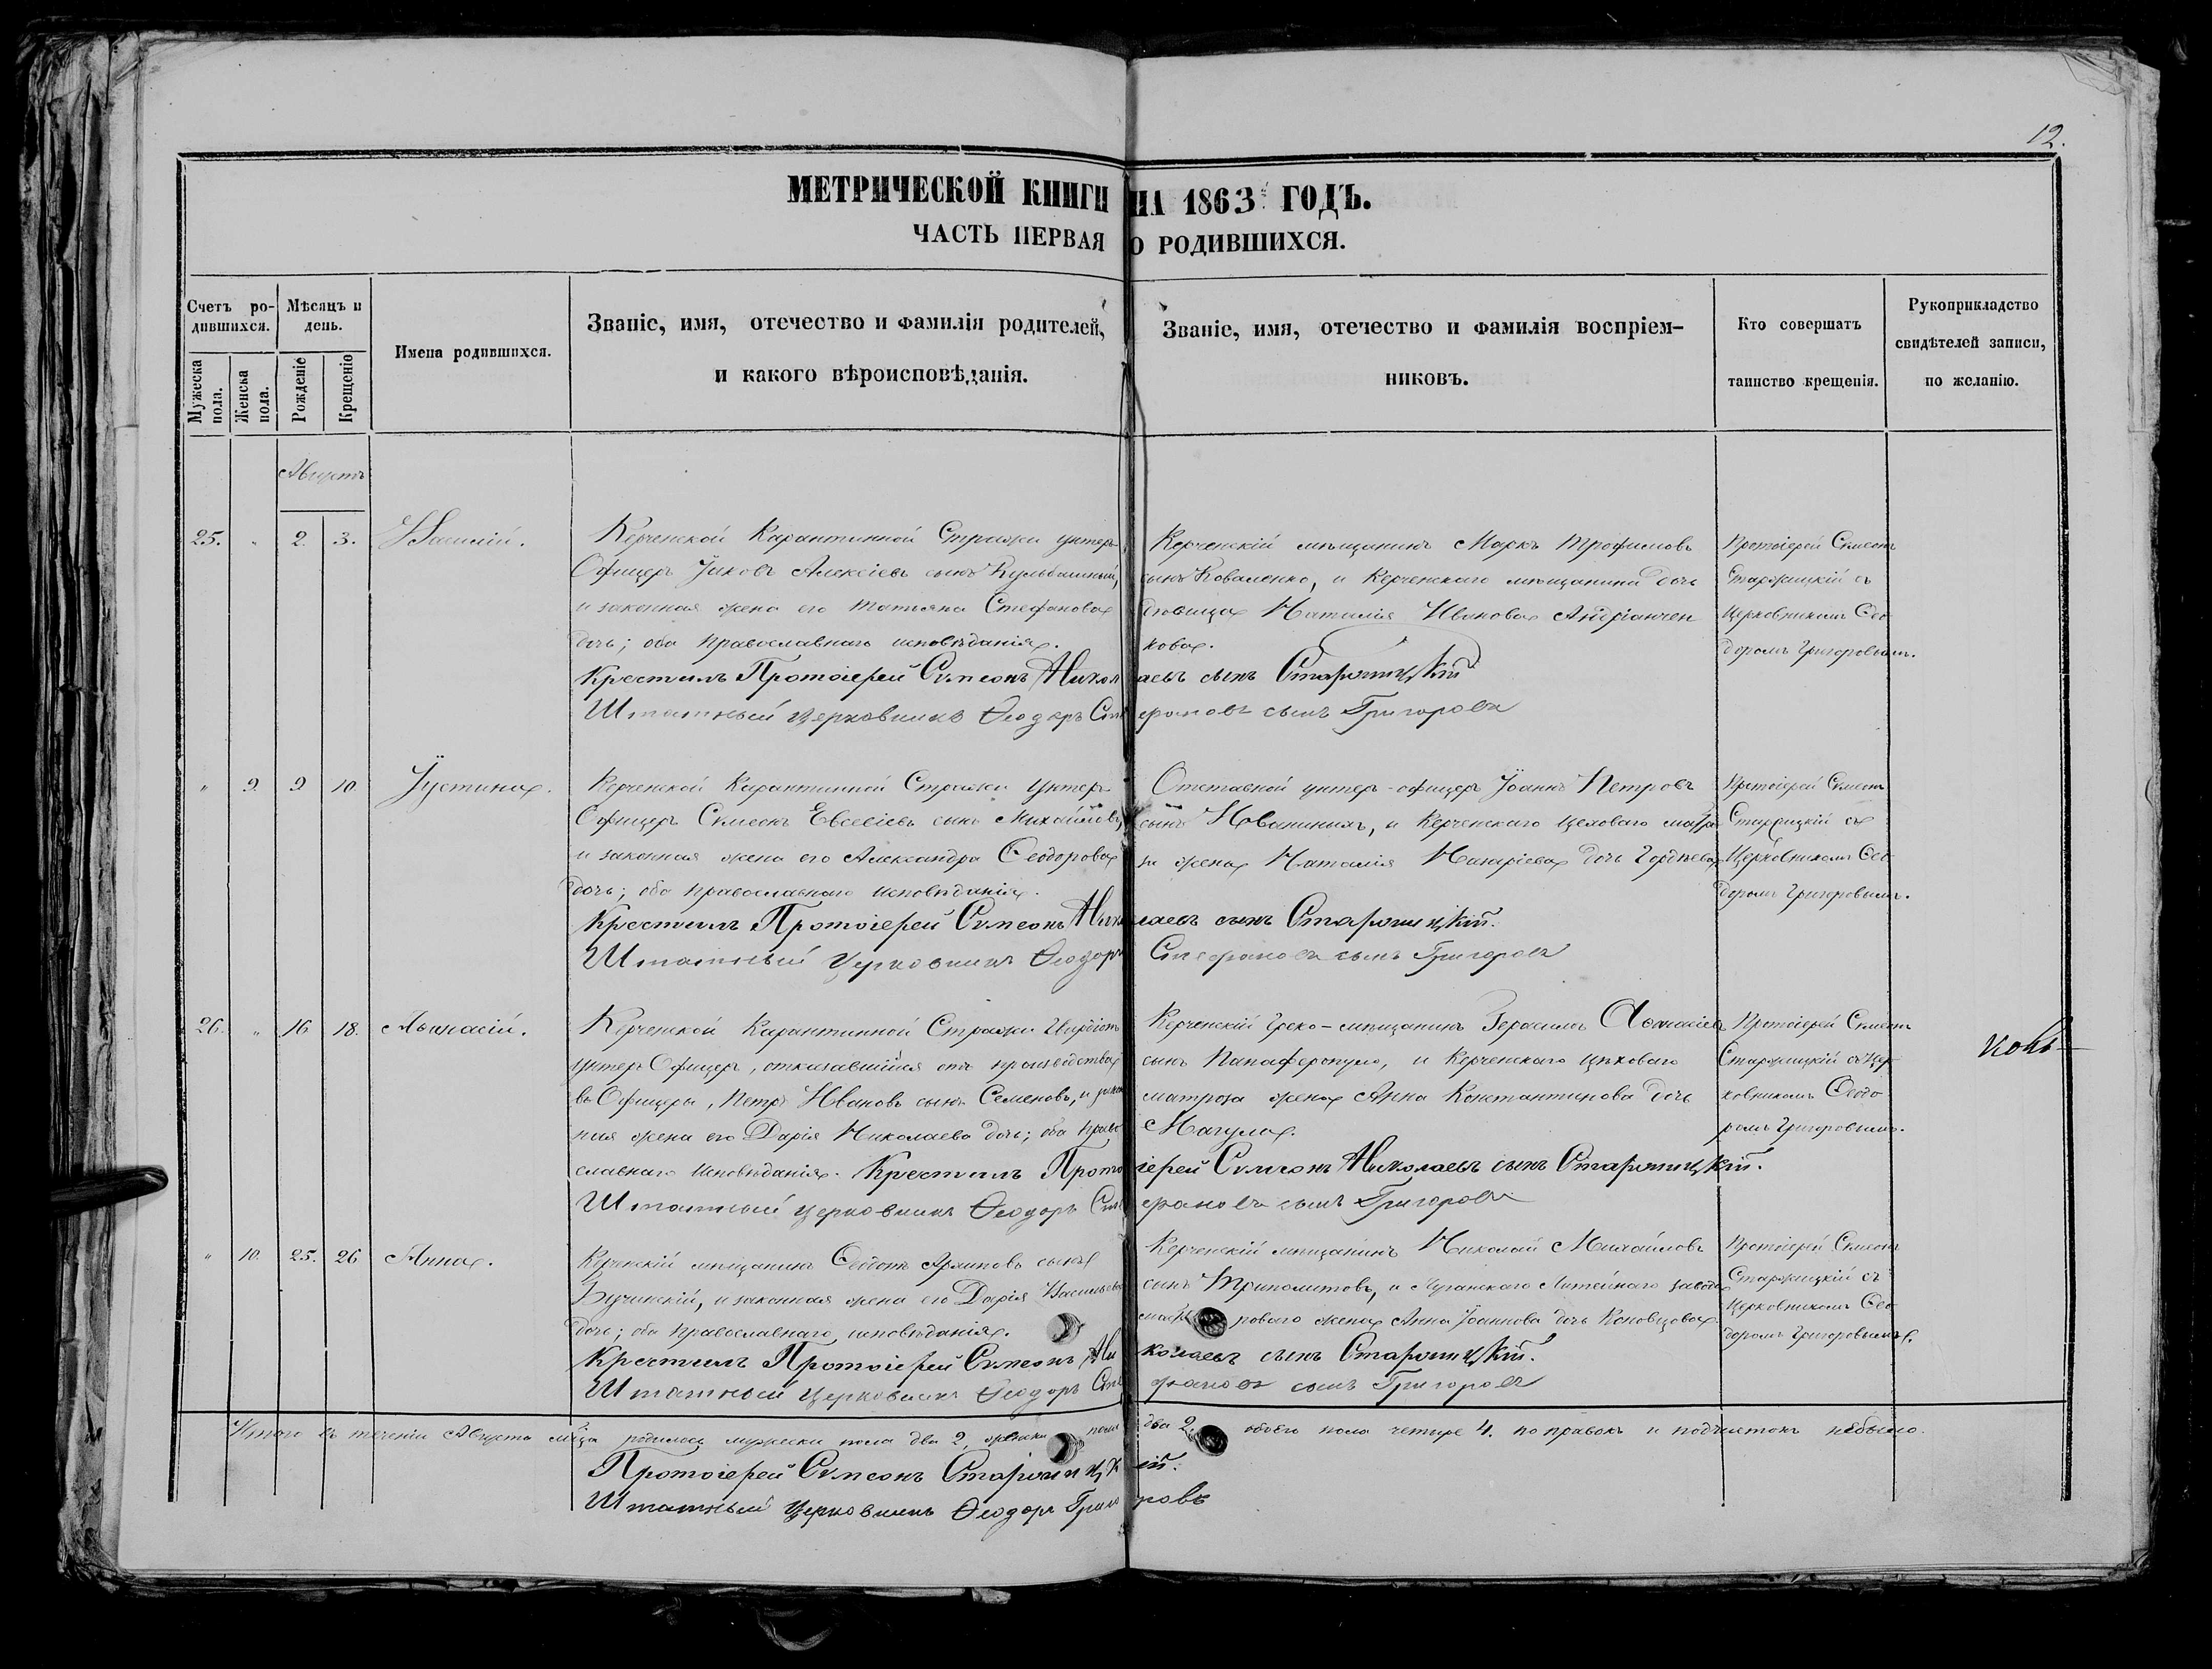 12.
МЕТРИЧЕСКОЙ КНИГИ НА 1863 ГОДЪ.
ЧАСТЬ ПЕРВАЯ О РОДИВШИХСЯ.
Счетъ ро-
дившихся.
Мужеска пола.
Женска пола.
Мѣсяцъ и
день.
Рожденіе
Крещеніе
Имена родившихся.
Званіе, имя, отечество и фамилія родителей,
и какого вѣроисповѣданія.
Званіе, имя, отечество и фамилія воспріем-
никовъ.
Кто совершатъ
таинство крещенія.
Рукоприкладство
свидѣтелей записи,
по желанію.
Августъ
25. " 2. 3. Василій.
Керченской Карантинной Стражи унтеръ-
Офицеръ Іаковъ Алексіевъ сынъ Кульбашный,
и законная жена его Татьяна Стефанова
дочь; оба православнаго исповѣданія.
Керченскій мѣщанинъ Маркъ Трофимовъ
сынъ Коваленко, и Керченскаго мѣщанина дочь
дѣвица Наталія Иванова Андріанчен
кова.
Протоіерей Симеонъ
Старжицкій съ
Церковникомъ Ѳео
доромъ Григоровымъ.
Крестилъ Протоіерей Сѵмеонъ Николаевъ сынъ
Штатный Церковникъ Ѳеодоръ Стефановъ сынъ Григоровъ
" 9. 9 10 Іустина.
Керченской Карантинной Стражи Унтеръ
Офицеръ Симеонъ Евсевіевъ сынъ Михайловъ,
и законная жена его Александра Ѳеодорова
дочь; оба православнаго исповѣданія.
Отставной унтеръ-офицеръ Іоаннъ Петровъ
сынъ и Керченскаго
жена Наталія дочь Гордѣева
Протоіерей Симеонъ
съ
Церковникомъ Ѳео
доромъ Григоровымъ.
Крестилъ Протоіерей Сѵмеонъ Николаевъ сынъ
Штатный Церковникъ Ѳеодоръ Стефановъ сынъ Григоровъ
26. " 16 18. Аѳанасій.
Керченской Карантинной Стражи
унтеръ Офицеръ, отказавшійся отъ производства
въ Офицеры, Петръ Ивановъ сынъ Семеновъ, и закон
ная жена его Дарія Николаева дочь; оба право
славнаго исповѣданія.
Керченскій Греко-мѣщанинъ Герасимъ Аѳанасіевъ
сынъ Панаферопуло, и Керченскаго цѣховаго
матроза жена Анна Константинова дочь
Мачула.
Протоіерей Симеонъ
Старжицкій съ Цер
ковникомъ Ѳеодо
ромъ Григоровымъ.
Крестилъ Протоіерей Сѵмеонъ Николаевъ сынъ
Штатный Церковникъ Ѳеодоръ Стефановъ сынъ Григоровъ
" 10. 25. 26 Анна.
Керченскій мѣщанинъ Ѳеодотъ сынъ
Бучинскій, и законная жена его Дарія Васильева
дочь; оба православнаго исповѣданія.
Керченскій мѣщанинъ Николай Михайловъ
сынъ Триполитовъ, и Луганскаго Литейнаго завода
роваго жена Анна Іоаннова дочь Коновцова.
Протоіерей Симеонъ
Старжицкій съ
Церковникомъ Ѳео
доромъ Григоровымъ.
Крестилъ Протоіерей Сѵмеонъ Николаевъ сынъ
Штатный Церковникъ Ѳеодоръ Стефановъ сынъ Григоровъ
Итого въ теченіи Августа м-ца родилось мужеска пола два 2, женска пола два 2, обоего пола четыре 4. поправокъ и подчистокъ небыло.
Протоіерей Сѵмеонъ
Штатный Церковникъ Ѳеодоръ Григоровъ